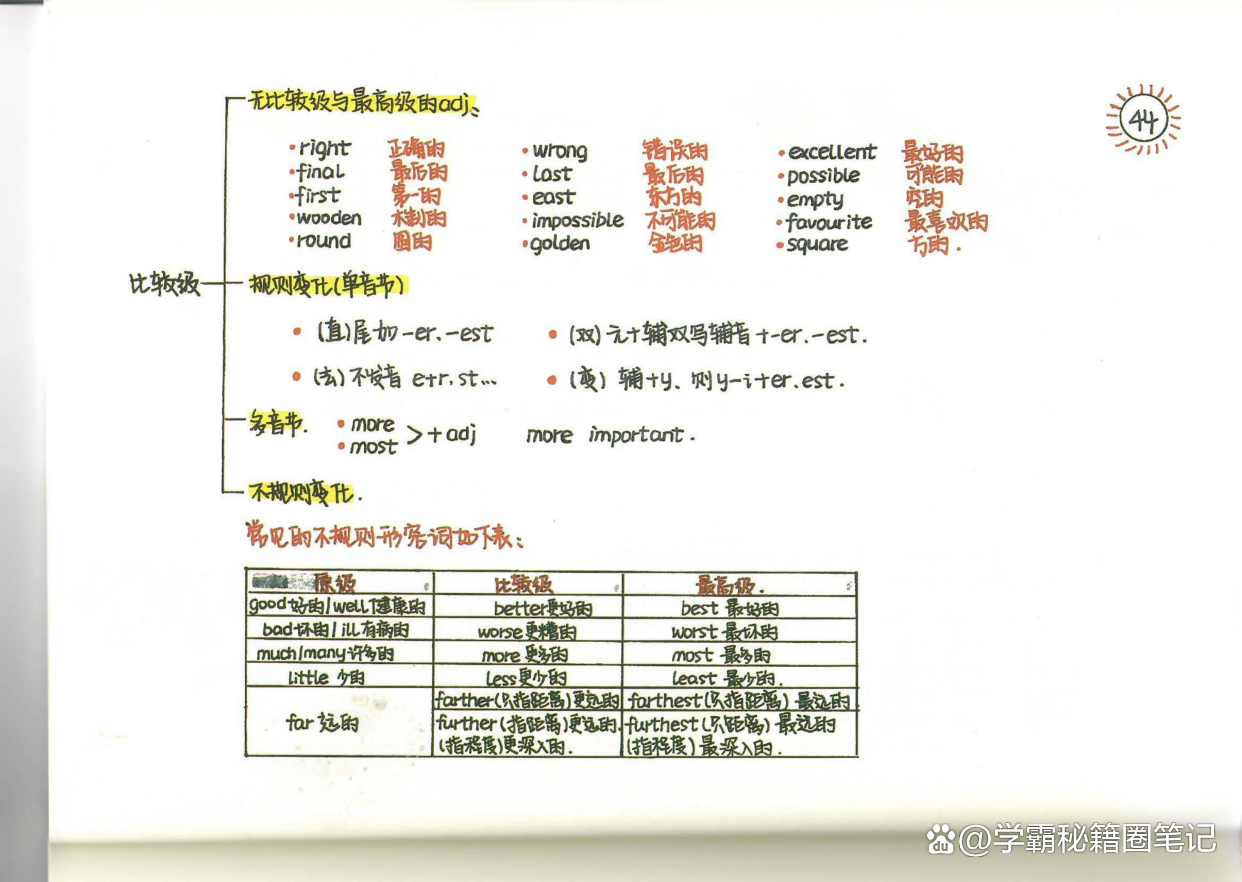 无比较级与最高级的adj、
44
•right 正确的 •wrong 错误的 •excellent 最好的
•final 最后的 •last 最后的 •possible 可能的
•first 第一的 •east 东方的 •empty 空的
•wooden 木制的 •impossible 不可能的 •favourite 最喜欢的
•round 圆的 •golden 金色的 •square 方的.
比较级
规则变化(单音节)
• (直)尾加-er、-est • (双)元+辅双写辅音+-er.-est.
• (去)不发音 e+r.st... • (变) 辅+y、则y-i+er.est.
多音节. •more •most >+adj more important.
不规则变化.
常见的不规则形容词如下表:
原级 比较级 最高级.
good好的/well健康的 better更好的 best 最好的
bad坏的/ill有病的 worse更糟的 worst 最坏的
much/many许多的 more 更多的 most 最多的
little 少的 less更少的 least 最少的.
far 远的 farther(只指距离)更远的 farthest(只指距离) 最远的
further(指距离)更远的. furthest(只距离)最远的
(指程度)更深入的. (指程度)最深入的.
du @学霸秘籍圈笔记